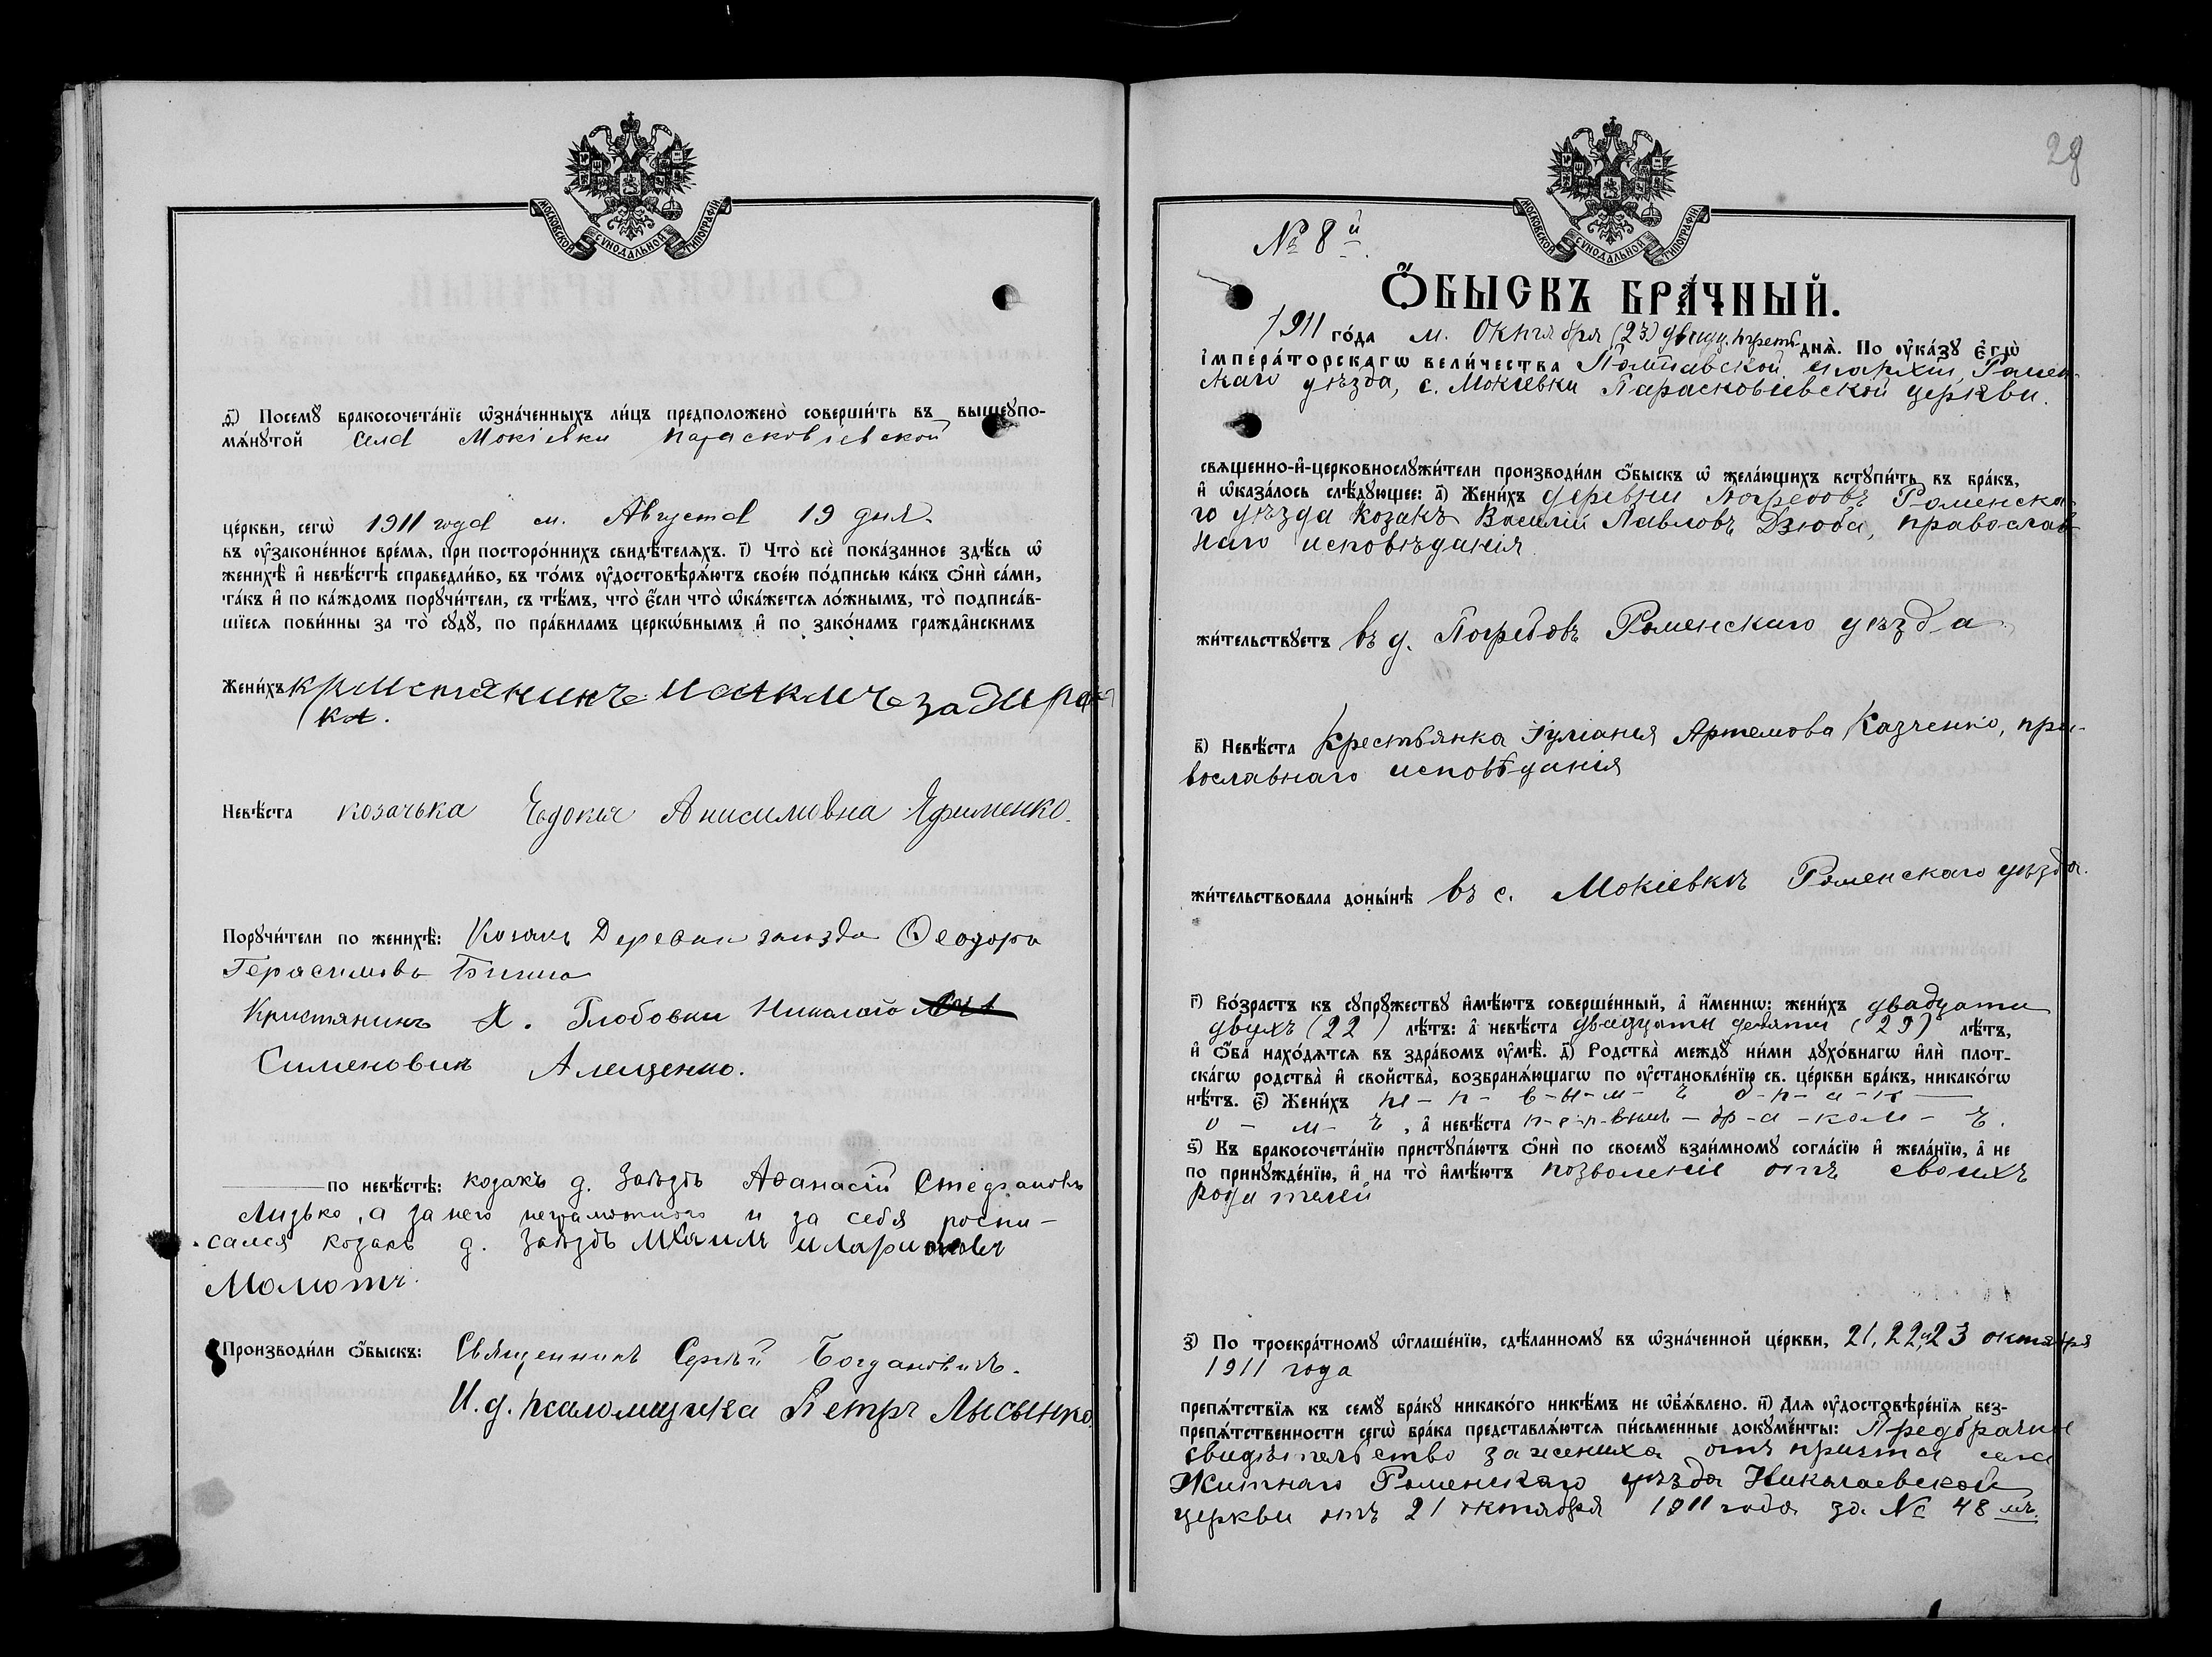 МОСКОВСКОЙ СѴНОДАЛЬНОЙ ТИПОГРАФІИ
д҃) Посемꙋ бракосочета́нїе ѡ҆зна́ченныхъ ли́цъ предположено̀ соверши́ть въ вышеꙋпо-
мѧ́нꙋтой села Мокіевки Парасковіевской
це́ркви, сегѡ̀ 1911 года м. Августа 19 дня.
въ ᲂу҆законе́нное вре́мѧ, при посторо́ннихъ свидѣ́телѧхъ. і҃) Что̀ всѐ пока́занное здѣ́сь ѡ҆
женихѣ̀ и҆ невѣ́стѣ справедли́во, въ то́мъ ᲂу҆достовѣрѧ́ютъ свое́ю по́дписью ка́къ ѻ҆нѝ са́ми,
та́къ и҆ по ка́ждомъ порꙋчи́тели, съ тѣ́мъ, что̀ є҆́сли что̀ ѡ҆ка́жетсѧ ло́жнымъ, то̀ подписа́в-
шїесѧ пови́нны за то̀ сꙋдꙋ̀, по пра́виламъ церкѡ́внымъ и҆ по зако́намъ гражда̑нскимъ
Жени́хъ кристянинъ Исакич задира
ка.
Невѣ́ста козачька Евдокия Анисимовна Яфименко.
Порꙋчи́тели по женихѣ̀: Козакъ Деревни заезда Ѳеодоръ
Герасимовъ
Кристянинъ Х. Глобовки Николай
Сименовичъ Алещенко.
по невѣ́стѣ: козакъ д. Заѣздъ Аѳанасій Стефановъ
Лизько, а за него неграмотного и за себя роспи-
сался козакъ д. Заѣздъ Мхаилъ Иларионовъ
Молотъ.
Производи́ли ѻ҆́быскъ: Священникъ Сергѣй Богдановичъ.
И. д. псаломщика Петръ Лысынко.
28
МОСКОВСКОЙ СѴНОДАЛЬНОЙ ТИПОГРАФІИ
№ 8й
Ѻ҆́БЫСКЪ БРА́ЧНЫЙ.
1911 го́да м. Октября (23) двадц. третьего днѧ̀. По ᲂу҆ка́зꙋ є҆гѡ̀
і҆мпера́торскагѡ вели́чества Полтавской епархіи, Ромен-
скаго уѣзда, с. Мокіевки Парасковіевской церкви.
свѧщенно-и҆-церковнослꙋжи́тели производи́ли ѻ҆́быскъ ѡ҆ жела́ющихъ встꙋпи́ть въ бра́къ,
и҆ ѡ҆каза́лось слѣ́дꙋющее: а҃) Жени́хъ деревни Погребовъ Роменска-
го уѣзда козакъ Василій Павловъ Дзюба, православ-
наго исповѣданія.
жи́тельствꙋетъ въ д. Погребовъ Роменскаго уѣзда.
в҃) Невѣ́ста крестьянка Іуліанія Артемова Казченко, пра-
вославнаго исповѣданія
жи́тельствовала доны́нѣ въ с. Мокіевкѣ Роменскаго уѣзда.
г҃) Во́зрастъ къ сꙋпрꙋ́жествꙋ и҆мѣ́ютъ соверше́нный, а҆ и҆́меннѡ: жени́хъ двадцати
двухъ (22) лѣ́тъ: а҆ невѣ́ста двадцати девяти (29) лѣ́тъ,
и҆ ѻ҆́ба нахо́дѧтсѧ въ здра́вомъ ᲂу҆мѣ̀. д҃) Родства̀ междꙋ̀ ни́ми дꙋхо́внагѡ и҆лѝ плот-
ска́гѡ родства̀ и҆ свойства̀, возбранѧ́ющагѡ по ᲂу҆становле́нїю св. це́ркви бра́къ, никако́гѡ
нѣ́тъ. є҃) Жени́хъ п-е-р-в-ы-м-ъ б-р-а-к-
о-м-ъ, а҆ невѣ́ста п-е-р-вымъ-бр-а-ком-ъ.
ѕ҃) Къ бракосочета́нїю пристꙋпа́ютъ ѻ҆нѝ по своемꙋ̀ взаи́мномꙋ согла́сїю и҆ жела́нїю, а҆ не
по принꙋжде́нїю, и҆ на то̀ и҆мѣ́ютъ позволеніе отъ своихъ
родителей
з҃) По троекра́тномꙋ ѡ҆глаше́нїю, сдѣ́ланномꙋ въ ѡ҆зна́ченной це́ркви, 21, 22 и 23 октября
1911 года
препѧ́тствїѧ къ семꙋ̀ бра́кꙋ никако́гѡ никѣ́мъ не ѡ҆б̾ѧ́влено. и҃) Длѧ ᲂу҆достовѣре́нїѧ без-
препѧ́тственности сегѡ̀ бра́ка представлѧ́ютсѧ пи́сьменные докꙋме́нты: Предбрачное
свидѣтельство за жениха отъ причта села
Житнаго Роменскаго уѣзда Николаевской
церкви отъ 21 октября 1911 года за № 48 мъ.